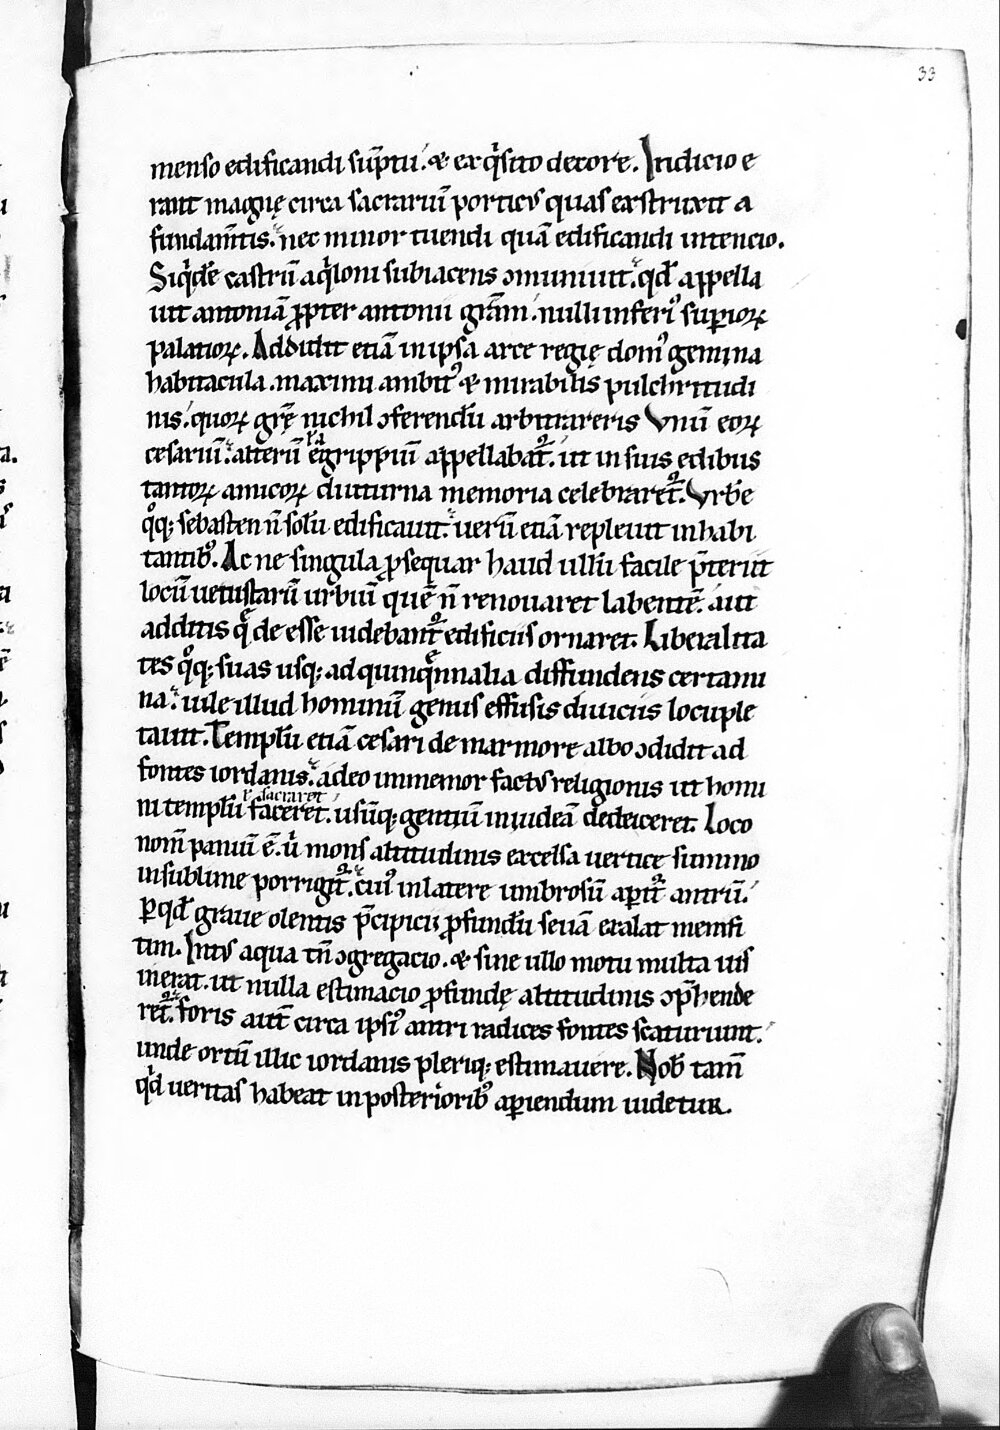 33
menso edificandi sūptu. & exq͛sito decore. Indicio e
rant magnę circa sacrariū porticus quas exstruxit a
fundam̄tis. nec minor tuendi quā edificandi intencio.
Siq͛dē castrū aq͛loni subiacens ↄmuniuit. qđ appella
uit antoniā ꝓpter antonii grām. nulli inferi᷒ supioꝝ
palatioꝝ. Addidit etiā in ipsa arce regię dom᷒ gemina
habitacula. maximi ambit᷒ & mirabilis pulchritudi
nis. quoꝝ grē nichil ↄferendū arbitrareris Vnū eoꝝ
cesariū. alterū egrippiū appellabat᷑. ut in suis edibus
tantoꝝ amicoꝝ diuturna memoria celebraret᷑. Vrbē
q°q; sebasten n̄ solū edificauit. uerū etiā repleuit inhabi
tantib᷒. Ac ne singula ꝓsequar haud ullū facile p̄teriit
locū uetustarū urbiū quē n̄ renouaret labentē. aut
additis q̄ de esse uidebant᷑ edificiis ornaret. Liberalita
tes q°q; suas usq; ad quinquēnnalia diffundens certami
na. uile illud hominū genus effusis diuiciis locuple
tauit. Templū etiā cesari de marmore albo ↄdidit ad
fontes iordanis. adeo immemor factus religionis ut homi
ł sacraret
ni templū faceret. usūq; gentiū in iudeā dedeiceret. Loco
nom̄ paniū ē. u͛ mons altitudinis excelsa uertice summo
in sublime porrigit᷑. cui᷒ in latere umbrosū aꝑit᷑ antrū.
Ꝑ qđ graue olentis p̄cipicii ꝓfundū seuā exalat memfi
tim. Intus aqua tn̄ ↄgregacio. & sine ullo motu multa uis
inerat. ut nulla estimacio ꝓfundę altitudinis ↄp̄hende
ret᷑. foris aut̄ circa ipsi᷒ antri radices fontes scaturiunt.
unde ortū illic iordanis pleriq; estimauere. Nob̄ tam̄
qđ ueritas habeat in posteriorib᷒ aꝑiendum uidetur.